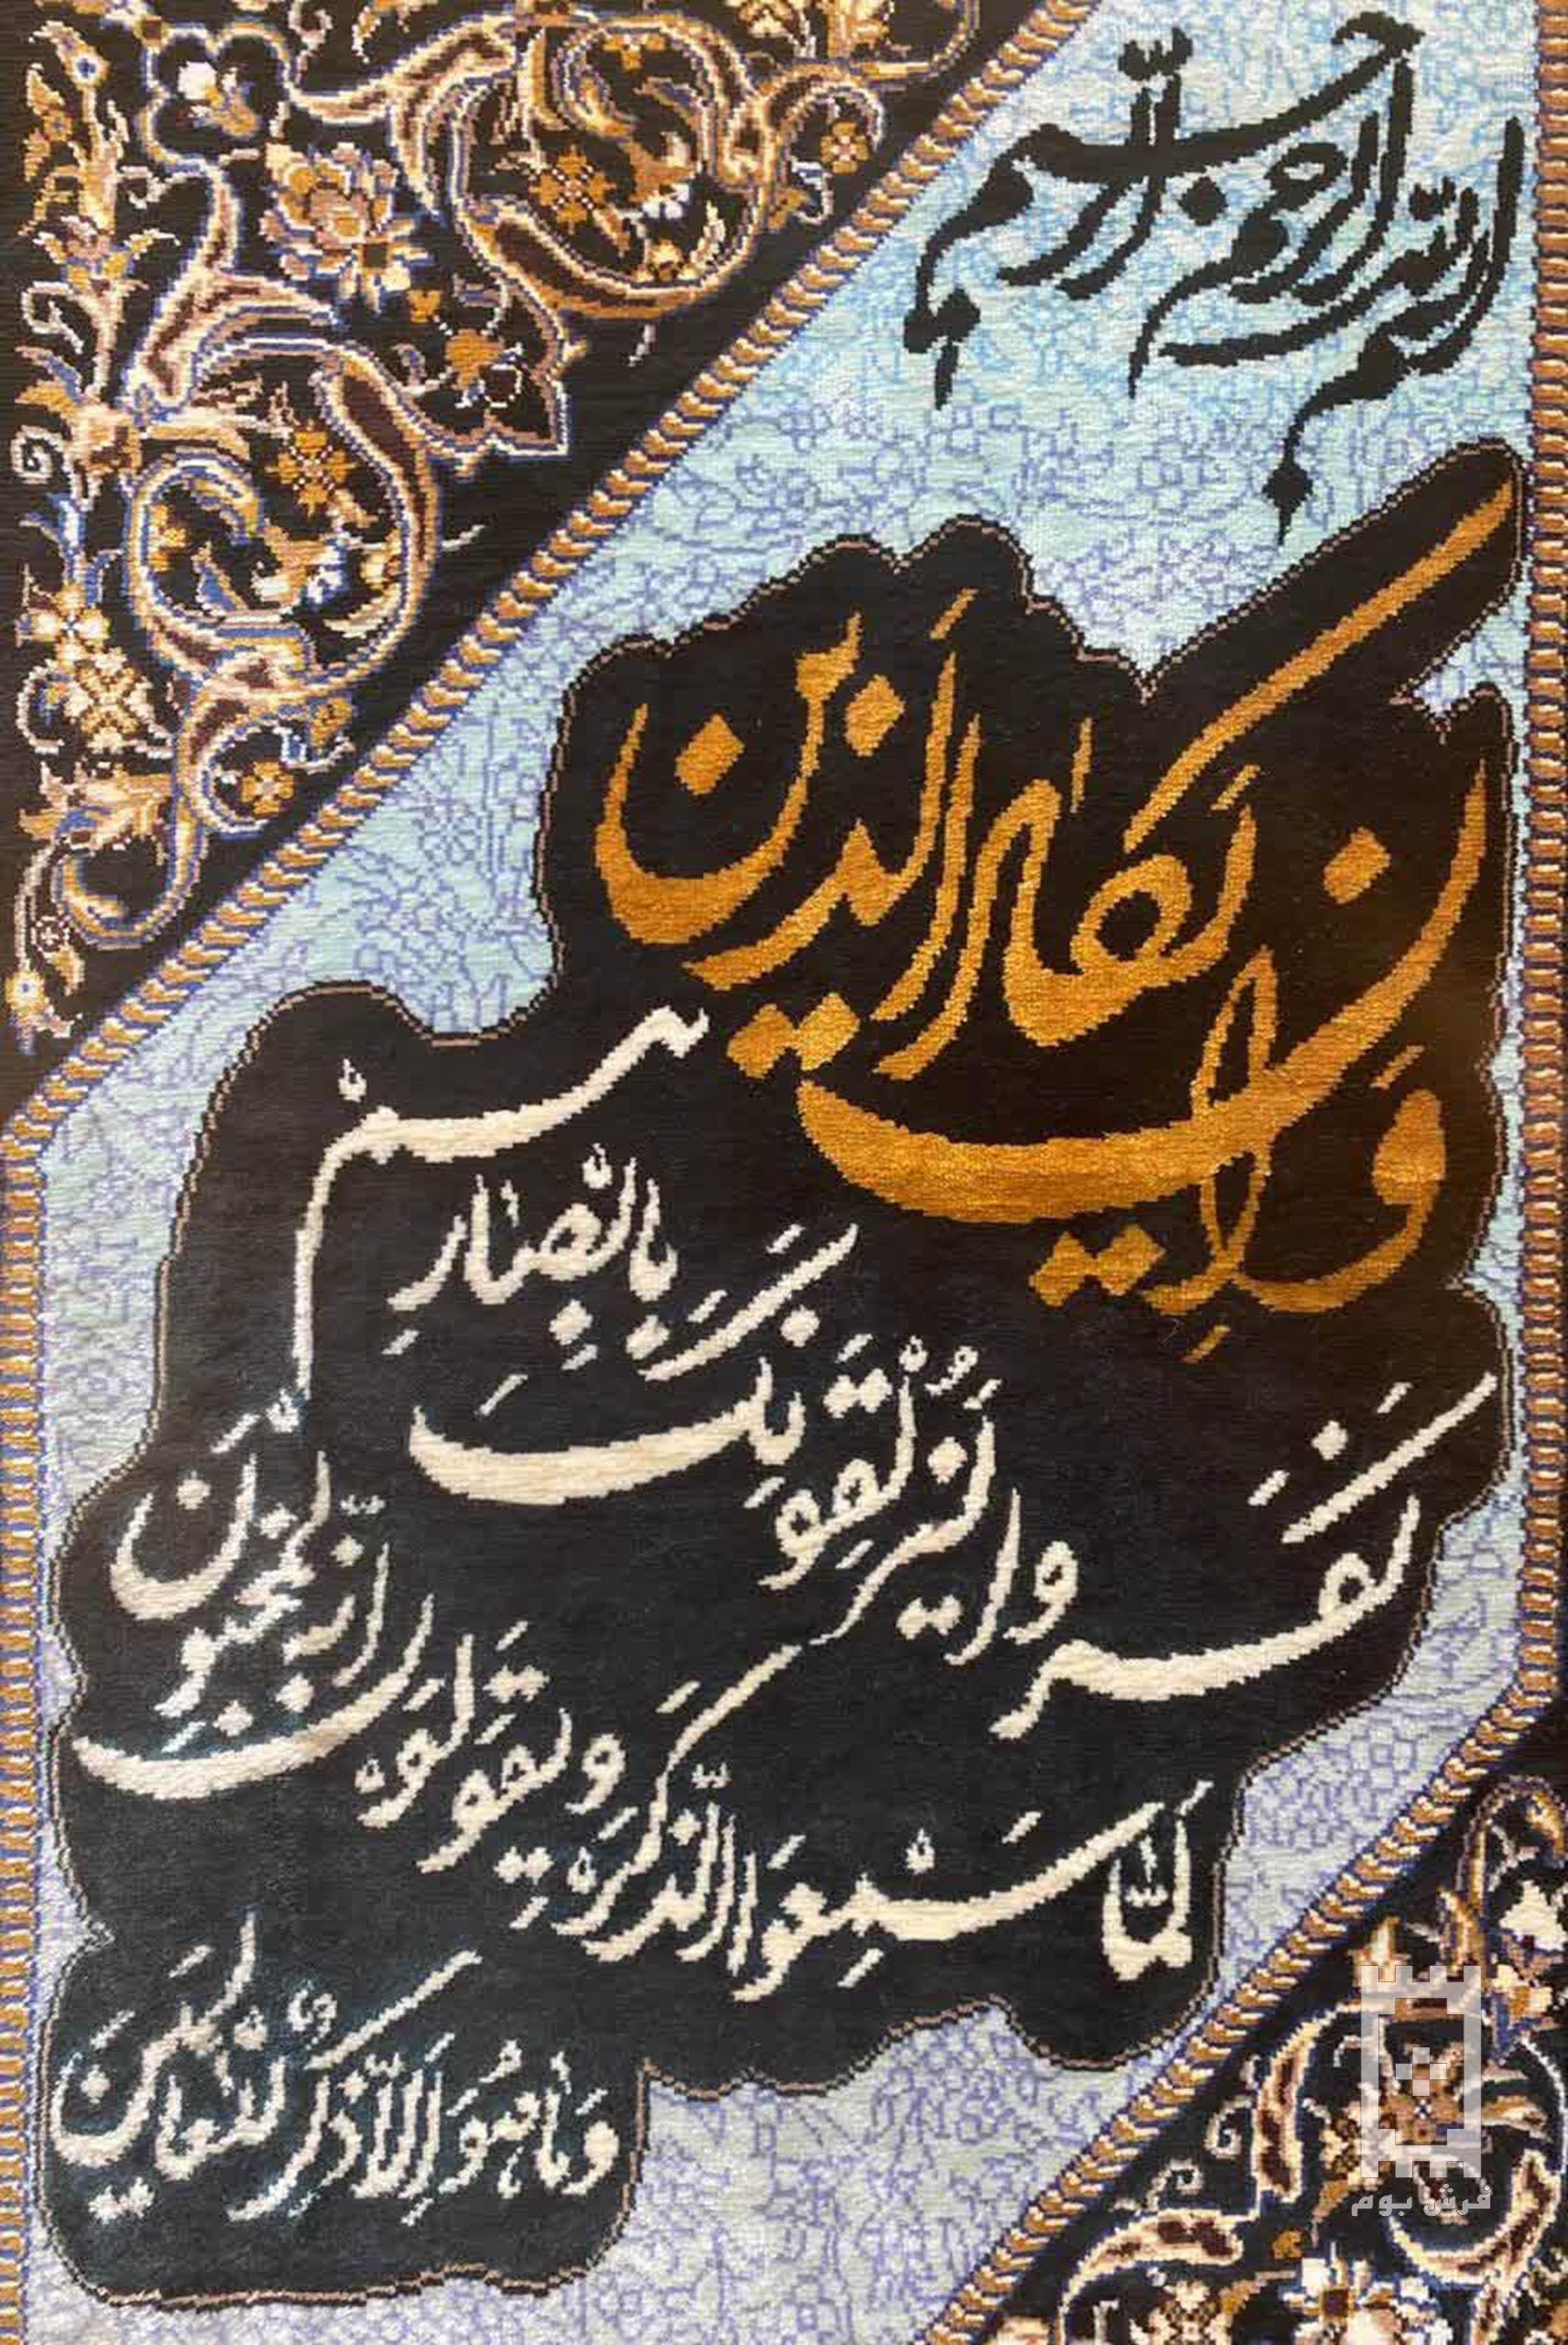 بسم الله الرحمن الرحیم
وَاِن یَکادُ الَّذینَ
کَفَروا لَیُزْلِقُونَکَ بِاَبْصارِهِمْ
لَمّا سَمِعُوا الذِّکرَ وَ یَقولونَ اِنَّهُ لَمَجْنونٌ
وَما هُوَ اِلّا ذِکرٌ لِلْعالَمینَ
فرش بوم